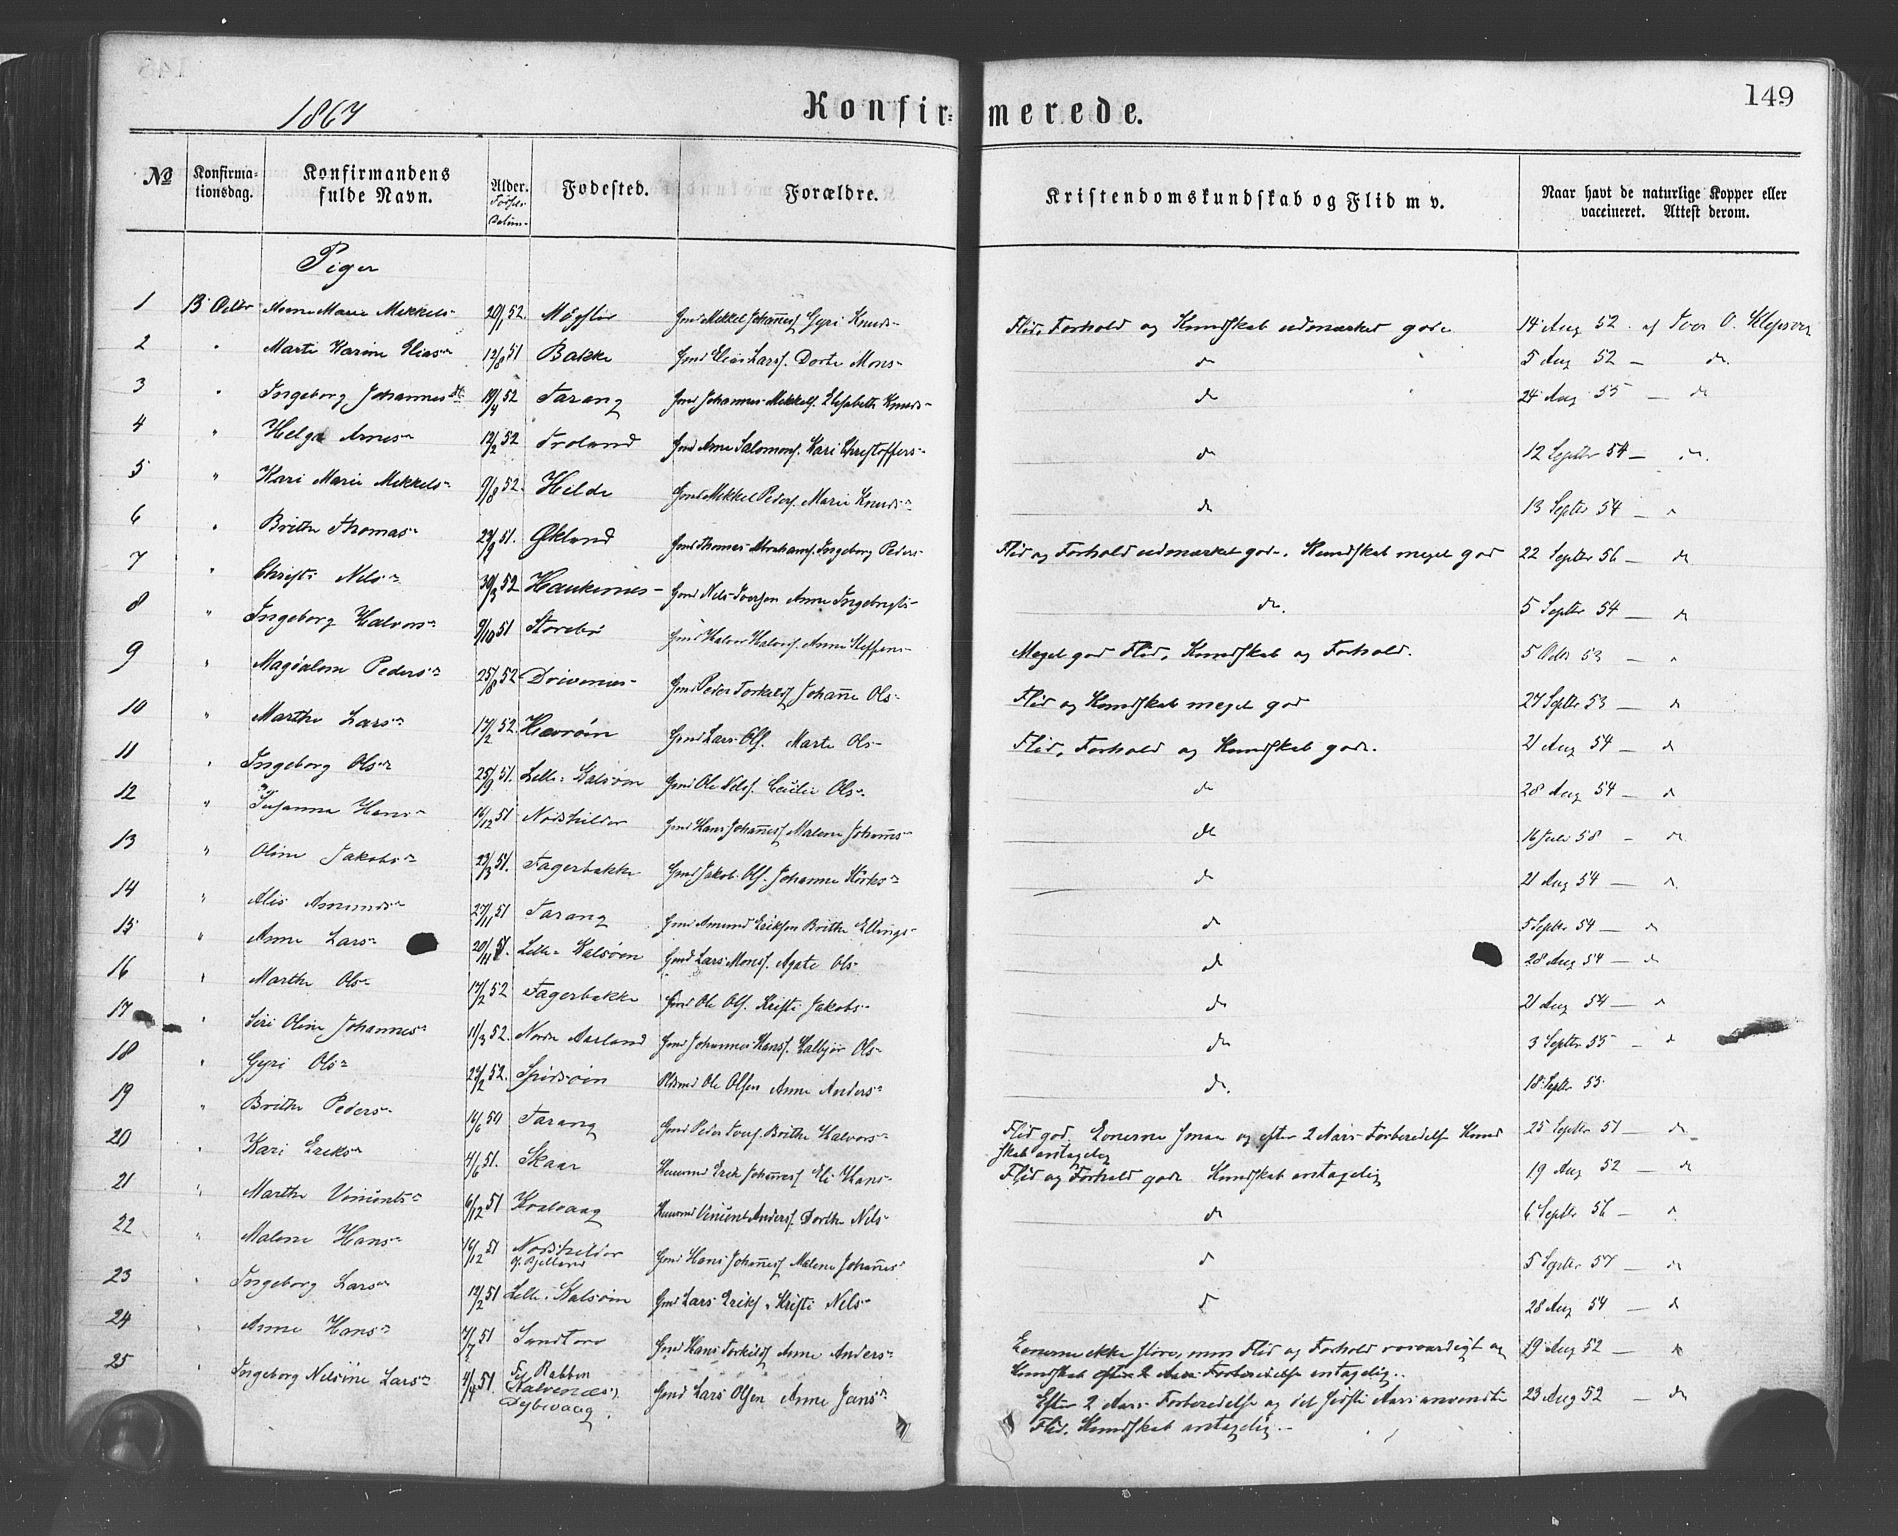 149
1867
Konfirmerede.
No Konfirmationsdag. Konfirmandens fulde Navn. Alder. Fødested. Forældre. Kristendomskundskab og Flid m v. Naar havt de naturlige Kopper eller vaccineret. Attest derom.
Piger
1 13 Octbr Anne Marie Mekkels- 20/1 52. Møgster Gmd Mekkel Johannesf Gyri Knuds- Flid, Forhold og Kundskab udmærket gode 14 Aug 52. af Iver O. Klepsvig
2 " Marte Karine Elias- 12/8 51 Bakke Gmd Elias Larsf. Dorte Mons- do 5 Aug 52 — do.
3 " Ingeborg Johannesdt 19/4 52 Tarang Gmd Johannes Mekkelf. Elisabeth Knuds- do 24 Aug 55 — do
4 " Helga Arnes- 12/2 52 Troland Gmd Arne Salomonf. Kari Christoffers- do 12 Septbr 54 — do.
5 " Kari Marie Mekkels- 9/8 52. Hilde Gmd Mekkel Pedersf. Marie Knuds- do 13 Septbr 54 — "
6 " Brithe Thomas- 29/9 51. Økland Gmd Thomas Abrahamf. Ingeborg Peders- Flid og Forhold udmærket gode. Kundskab meget god 22 Septbr 56 — do
7 " Christi Nils- 30/3 52 Haukenæs- Gmd Nils Iversen Anne Ingebrigts- do. 5 Septbr 54 — do
8 " Ingeborg Halvors- 9/10 51 Storebø Gmd Halvor Halvorf. Anne Steffens- Meget god Flid, Kundskab og Forhold. 5 Octbr 53 — "
9 " Magdalene Peders- 25/8 52 Drivenæs- Gmd Peder Torkelsf Johanne Ols- Flid og Kundskab meget god 27 Septbr 53 — do
10 " Marthe Lars- 17/2 52. Hævrøen Gmd Lars Olf. Marte Ols- Flid, Forhold og Kundskab gode. 21 Aug 54 — do
11 " Ingeborg Ols- 25/9 51. Lille-Kalsøen Gmd Ole Nilsf. Cecilie Ols- do 28 Aug 54 — do
12 " Susanna Hans- 16/12 51 Nordskilder Gmd Hans Johannesf Malene Johannes- do 16 Juli 58 — do
13 " Oline Jakobs- 23/3 51. Fagerbakke Gmd Jakob Olf. Johanne Størks- do 21 Aug 54 — "
14 " Alis Amunds- 27/11 51 Tarang Gmd Amund Eriksen Brithe Ellings- do 5 Septbr 54 — do
15 " Anne Lars- 20/11 51. Lille-Kalsøen Gmd Lars Monsf. Agate Ols- do 28 Aug 54 — do
16 " Marthe Ols- 17/2 52 Fagerbakke Gmd Ole Olf. Kristi Jakobs- do 21 Aug 54 — "
17 " Siri Oline Johannes- 11/3 52. Nordre Aarland Gmd Johannes Hansf. Ols- do 3 Septbr 55 — "
18 " Gyri Ols- 24/2 52. Spidsøen Ole Olsen Anne Anders- do. 18 Septbr 55
19 " Brithe Peders- 16/6 50 Tarang Gmd Peder Iverf. Brithe Halvors- Flid god. Evnerne smaa og efter 2 Aars Forberedelse Kund 25 Septbr 51 — do
skab antagelig
20 " Kari Eriks- 4/6 51. Skaar Huusmd Erik Johannesf Eli Hans- Flid og Forhold gode Kundskab antagelig 19 Aug 52 — do
21 " Marthe Vincents- 6/12 51 Kvalvaag Huusmd Vincent Andersf. Dorthe Nils- do 6 Septbr 56 — "
22 " Malene Hans- 16/12 51 Nordskilder Gmd Hans Johannesf Malene Johannes- do 5 Septbr 57 — do
23 " Ingeborg Lars- 12/2 51 Lille-Kalsøen Gmd Lars Eriksf. Kristi Nils- do 28 Aug 54 — do
24 " Anne Hans- 7/7 51 Sandtorv Gmd Hans Torkildsf Anne Anders- Evnerne ikke store, men Flid og Forhold rosværdigt og 29 Aug 52 — do
Kundskab efter 2 Aars Forberedelse antagelig.
25 " Ingeborg Nilsine Lars- 4/4 51. Rabben Kalvenæs, Dybevaag. Gmd Lars Olsen Anne Jans- Efter 2 Aars Forberedelse og det sidste Aars anvendte 23 Aug 52 — do
Flid, Kundskab antagelig.